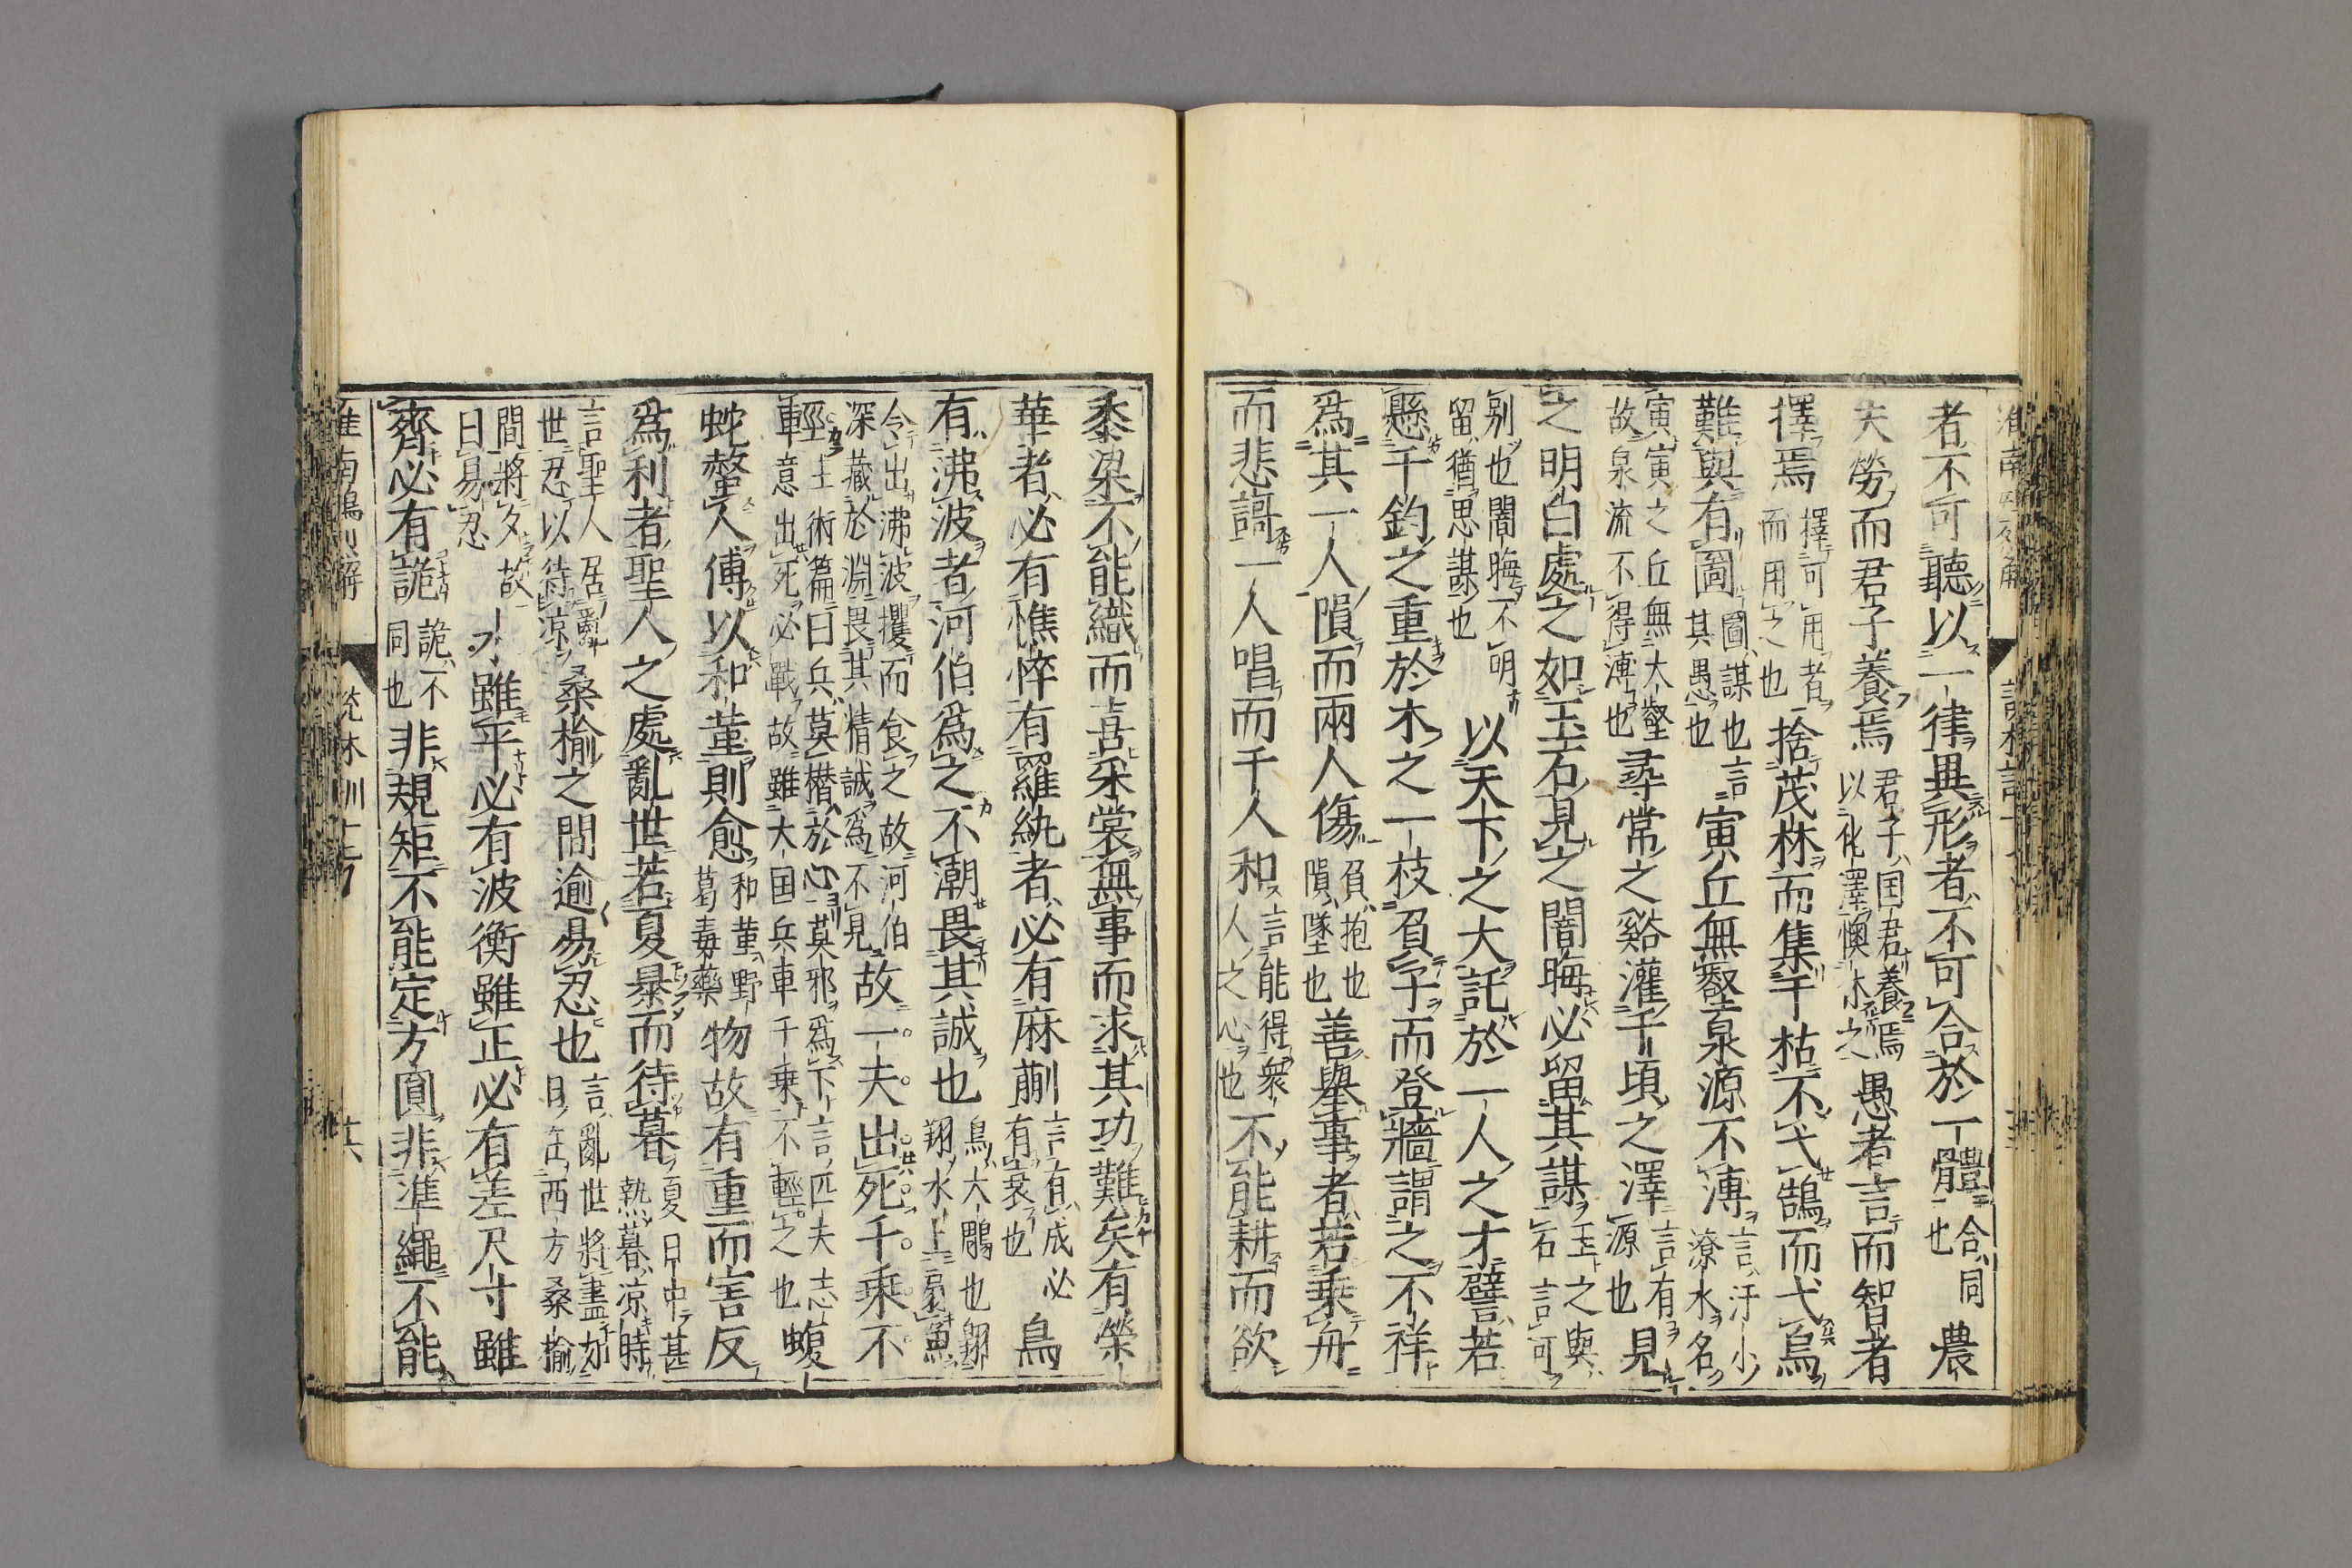 者不可聽以一律異形者不可合於一體合同也農
夫勞而君子養焉君子国君養焉以化澤懊休之愚者言而智者
擇焉擇可用者而用之也捨茂林而集于枯不弋鵠而弋烏
難與有圖圖謀也言其愚也寅丘無壑泉源不溥言汙小潦水名
寅寅之丘無大壑故泉流不得溥也尋常之谿灌千頃之澤言有源也見
之明白處之如玉石見之闇晦必留其謀玉之與石言可
別也闇晦不明留猶思謀也以天下之大託於一人之才譬若
懸千鈞之重於木之一枝負子而登牆謂之不祥
爲其一人隕而兩人傷負抱也隕墜也善舉事者若乘舟
而悲謌一人唱而千人和言能得衆人之心也不能耕而欲
黍粱不能織而喜采裳無事而求其功難矣有榮
華者必有憔悴有羅紈者必有麻蒯言有成必有衰也鳥
有沸波者河伯爲之不潮畏其誠也鳥大鵰也翱翔水上扇魚
令出沸波攫而食之故河伯深藏於淵畏其精誠爲不見故一夫出死千乘不
輕主術篇曰兵莫憯於心莫邪爲下言匹夫志意出死必戰故雖大国兵車千乘不輕之也蝮
蛇螫人傅以和堇則愈和堇野葛毒藥物故有重而害反
爲利者聖人之處亂世若夏暴而待暮夏日中甚熱暮涼時
言聖人居亂世忍以待涼桑榆之間逾易忍也言亂世將盡如日在西方桑榆
間將夕故曰易忍雖平必有波衡雖正必有差尺寸雖
齊必有詭詭不同也非規矩不能定方圓非準繩不能
淮南鴻烈解 說林訓 十七 十六